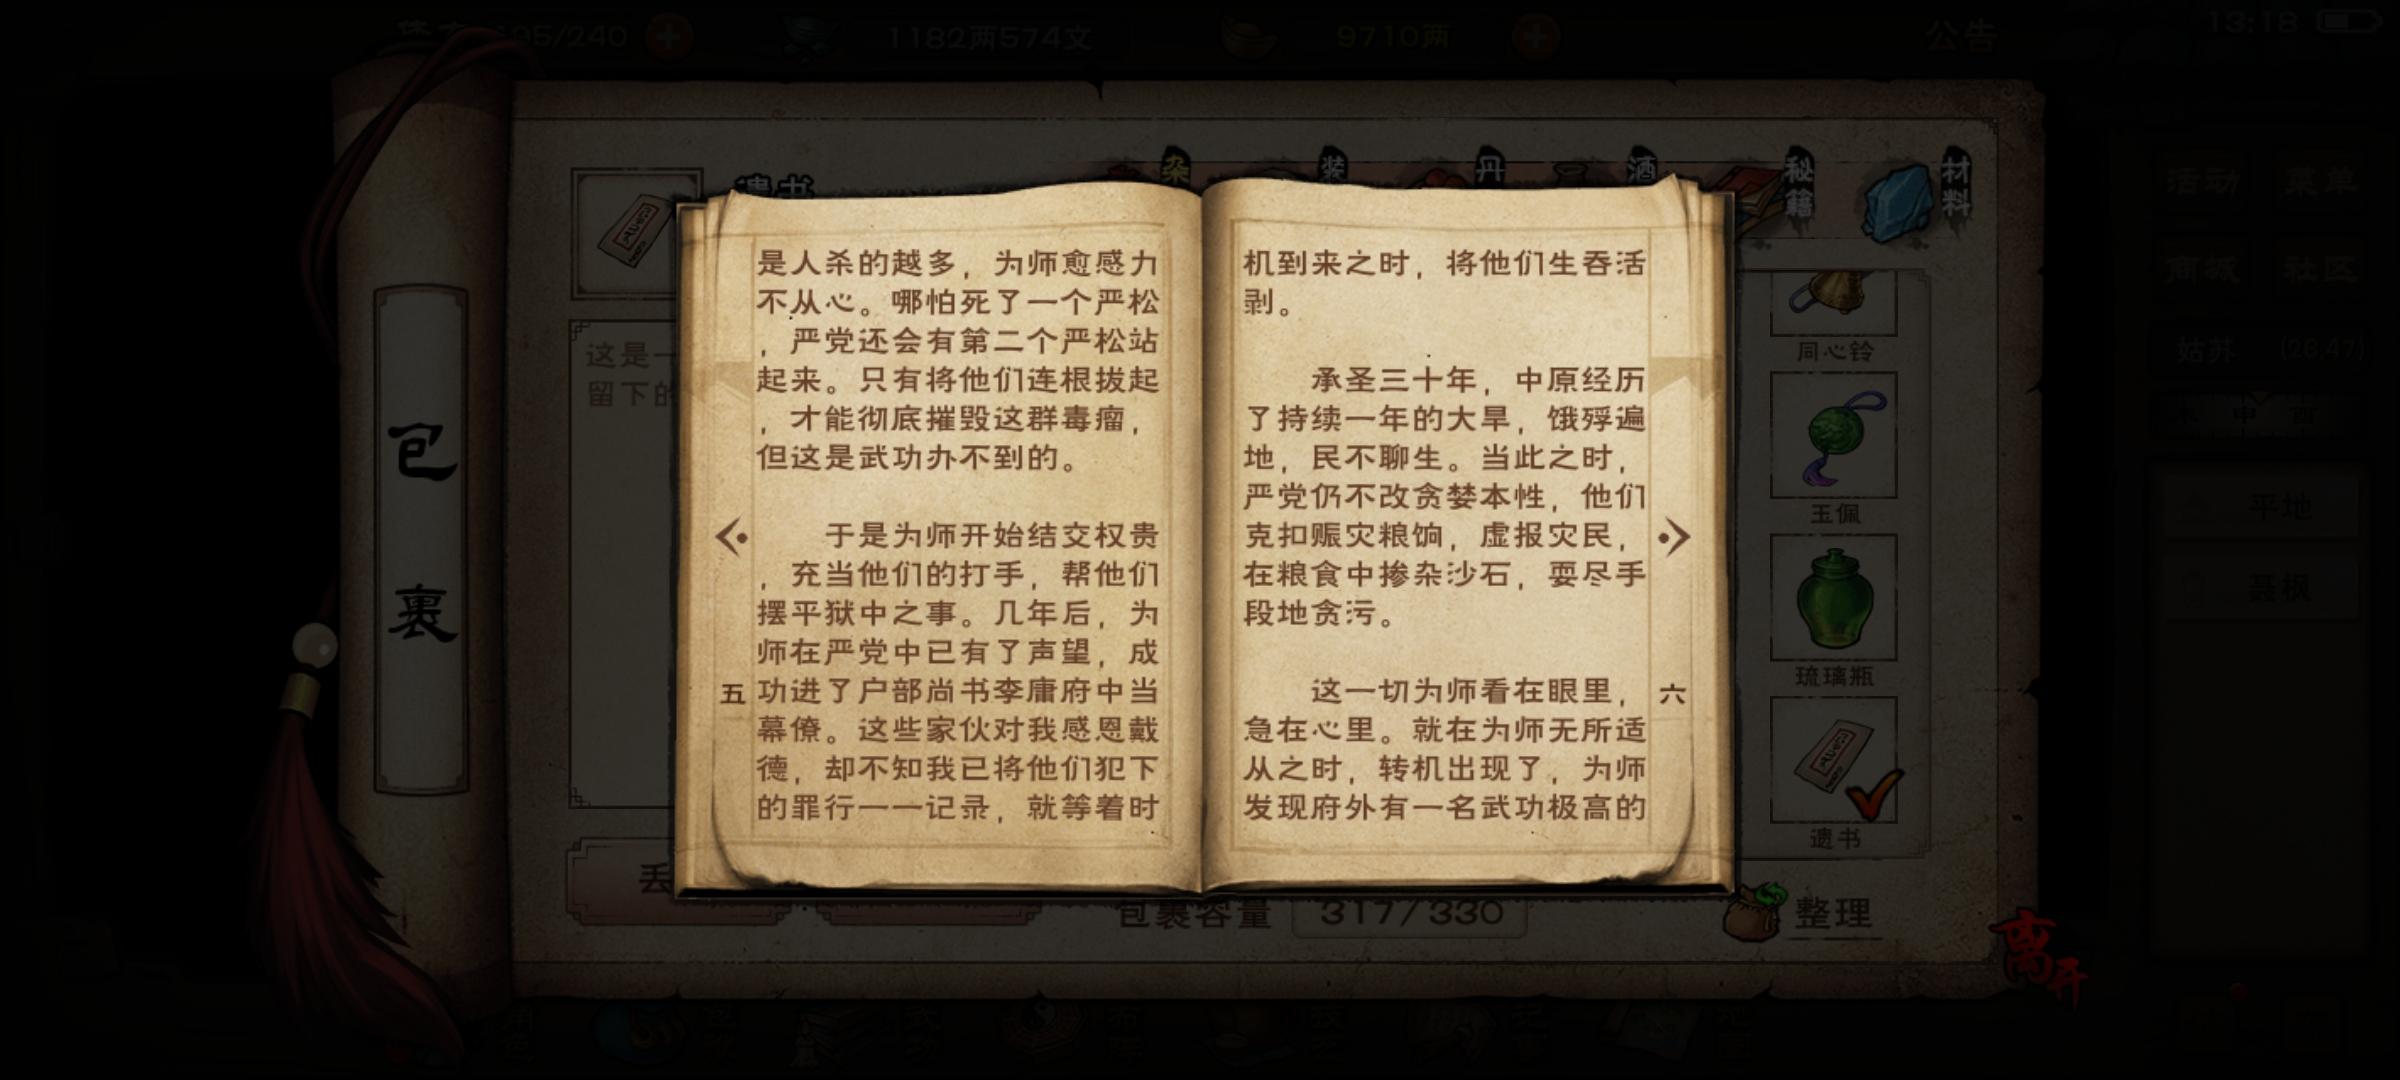 195/240
1182两574文
9710两
公告
13:18
遗书
杂
装
丹
酒
秘籍
材料
活动
菜单
商城
社区
姑苏
(26,47)
平地
聂枫
包裹
这是一
留下的
是人杀的越多，为师愈感力
不从心。哪怕死了一个严松
，严党还会有第二个严松站
起来。只有将他们连根拔起
，才能彻底摧毁这群毒瘤，
但这是武功办不到的。
于是为师开始结交权贵
，充当他们的打手，帮他们
摆平狱中之事。几年后，为
师在严党中已有了声望，成
功进了户部尚书李庸府中当
幕僚。这些家伙对我感恩戴
德，却不知我已将他们犯下
的罪行一一记录，就等着时
五
机到来之时，将他们生吞活
剥。
承圣三十年，中原经历
了持续一年的大旱，饿殍遍
地，民不聊生。当此之时，
严党仍不改贪婪本性，他们
克扣赈灾粮饷，虚报灾民，
在粮食中掺杂沙石，耍尽手
段地贪污。
这一切为师看在眼里，
急在心里。就在为师无所适
从之时，转机出现了，为师
发现府外有一名武功极高的
六
同心铃
玉佩
琉璃瓶
遗书
丢
包裹容量
317/330
整理
离开